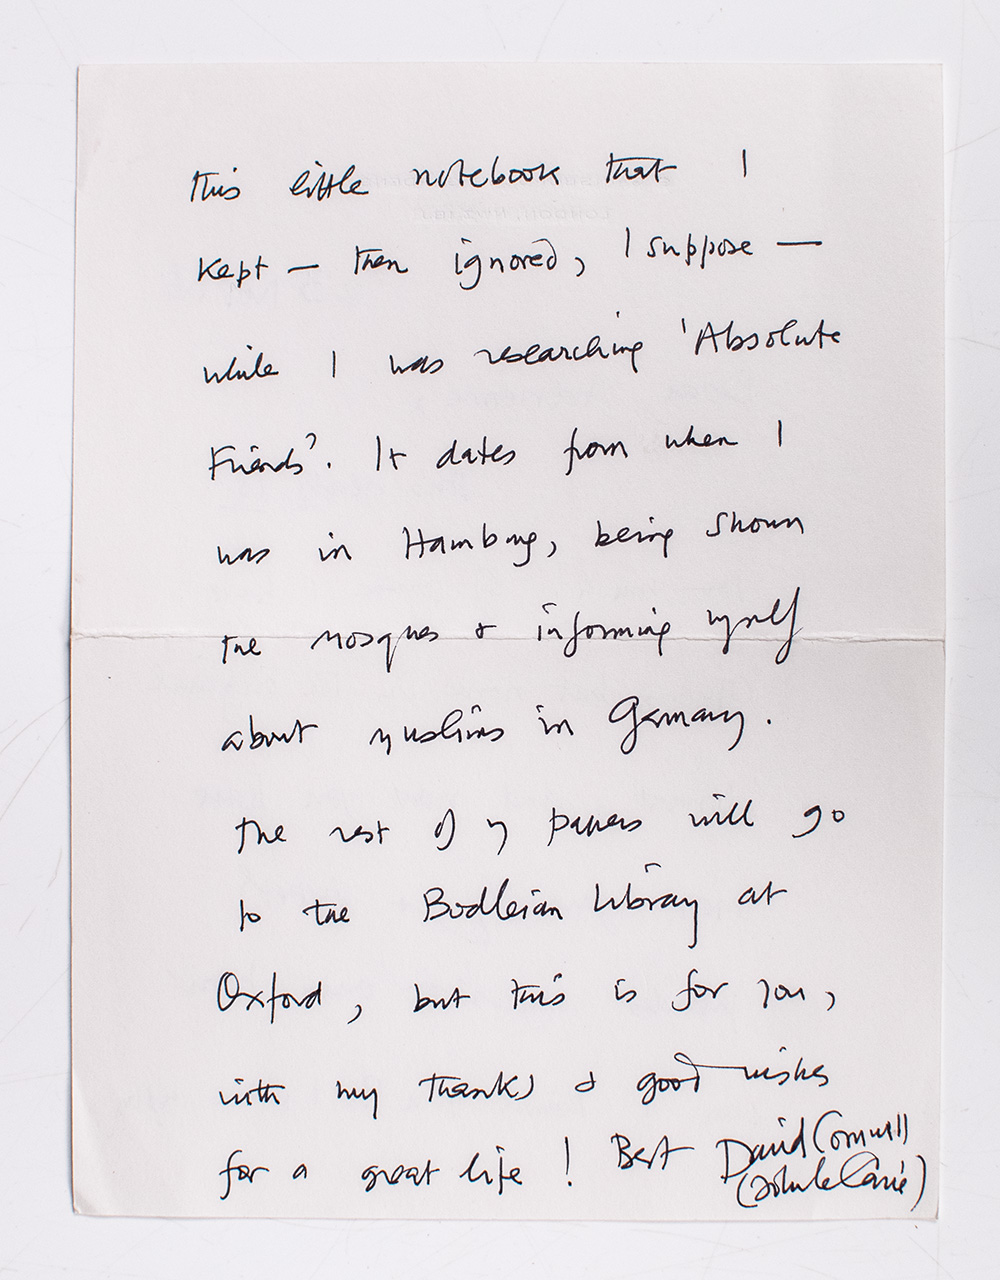 this little notebook that I
kept — then ignored, I suppose —
while I was researching 'Absolute
Friends'. It dates from when I
was in Hamburg, being shown
the mosques & informing myself
about muslims in Germany.
The rest of my papers will go
to the Bodleian Library at
Oxford, but this is for you,
with my thanks & good wishes
for a great life! Best David Cornwell
(John le Carré)